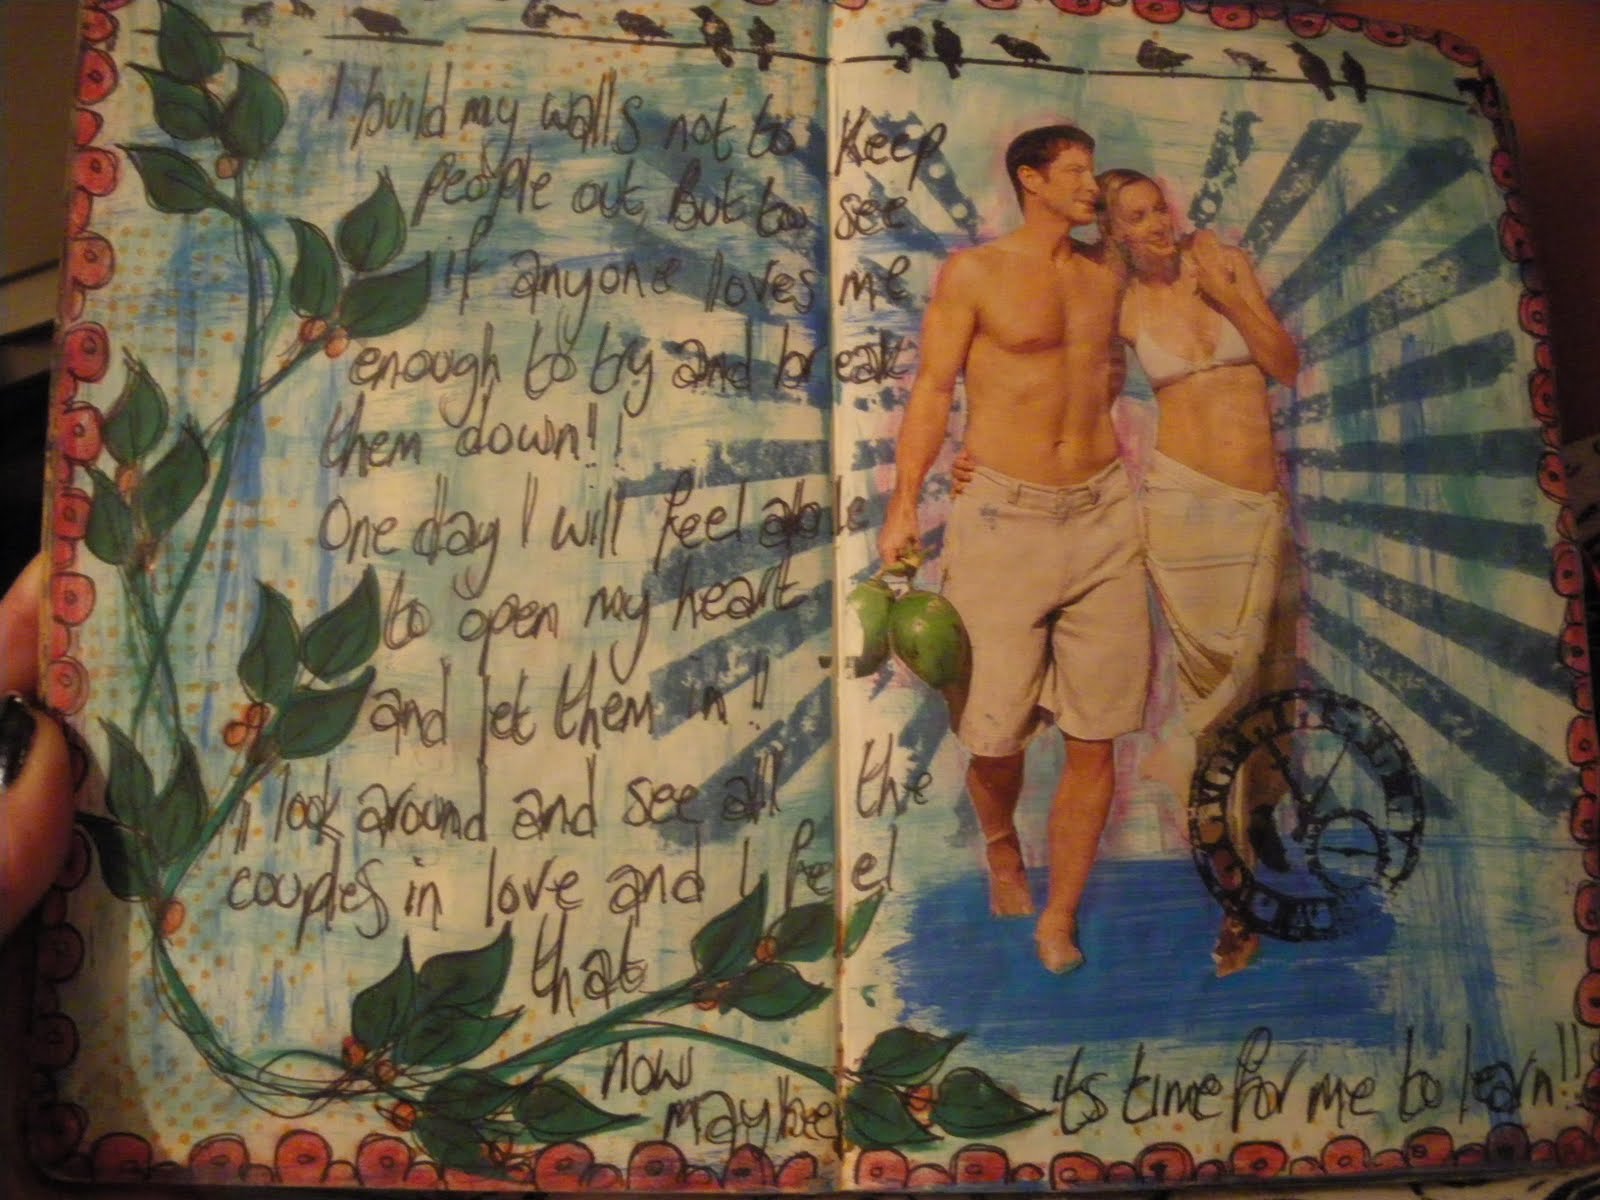 I build my walls not to keep
people out But to see
if anyone loves me
enough to try and break
them down!!
One day I will feel able
to open my heart
and let them in!!
I look around and see all the
couples in love and I feel
that
now
maybee its time for me to learn!!